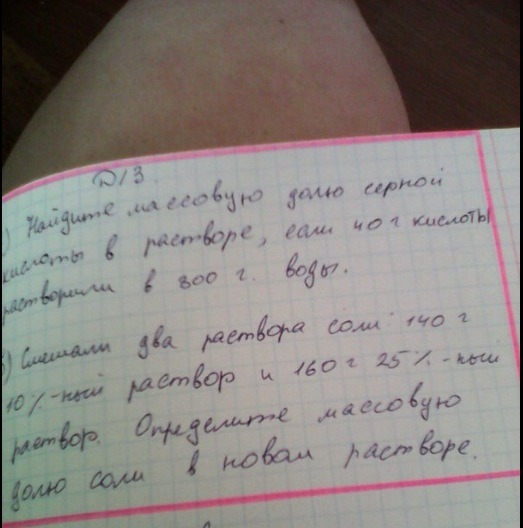 Д/З
) Найдите массовую долю серной
кислоты в растворе, если 40 г кислоты
растворили в 800 г. воды.
) Смешали два раствора соли 140 г
10%-ный раствор и 160 г 25%-ный
раствор. Определите массовую
долю соли в новом растворе.